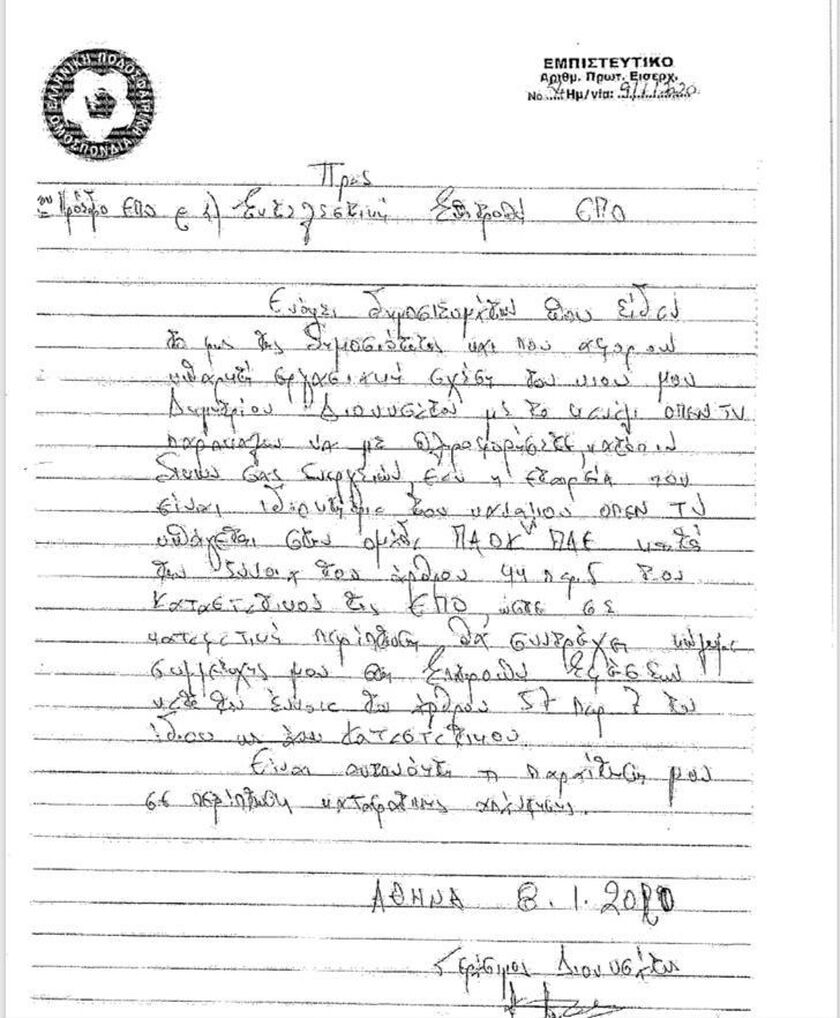 ΕΛΛΗΝΙΚΗ ΠΟΔΟΣΦΑΙΡΙΚΗ ΟΜΟΣΠΟΝΔΙΑ
ΕΜΠΙΣΤΕΥΤΙΚΟ
Αριθμ. Πρωτ. Εισερχ.
Νο Ημ/νία: 9/1/2020
Προς
Πρόεδρο ΕΠΟ Εκτελεστική Επιτροπή ΕΠΟ
Ενόψει δημοσιευμάτων που είδαν
το φως της δημοσιότητας και που αφορούν
υπαρκτή εργασιακή σχέση του υιού μου
Δημητρίου Διονυσάτου με το κανάλι OPEN TV
παρακαλώ να με πληροφορήσετε, κατόπιν
δικών σας ενεργειών, εάν η εταιρεία που
είναι ιδιοκτήτης του καναλιού OPEN TV
υπάγεται στον όμιλο ΠΑΟΚ ΠΑΕ κατά
την έννοια του άρθρου 44 παρ. 5 του
Καταστατικού της ΕΠΟ, ώστε σε
καταφατική περίπτωση θα συντρέχει κώλυμα
συμμετοχής μου στη Επιτροπή Εφέσεων
κατά την έννοια του άρθρου 57 παρ 7 του
ιδίου ως άνω Καταστατικού.
Είναι αυτονόητη η παραίτησή μου
σε περίπτωση καταφατικής απάντησης.
ΑΘΗΝΑ 8.1.2020
Γεράσιμος Διονυσάτος